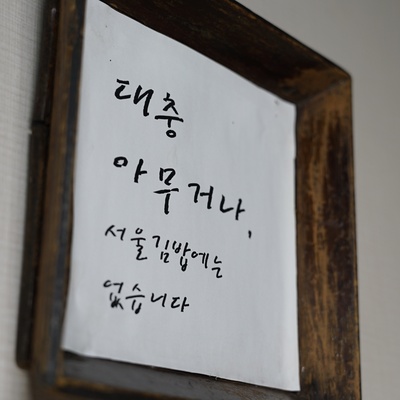 대충
아무거나,
서울김밥에는
없습니다